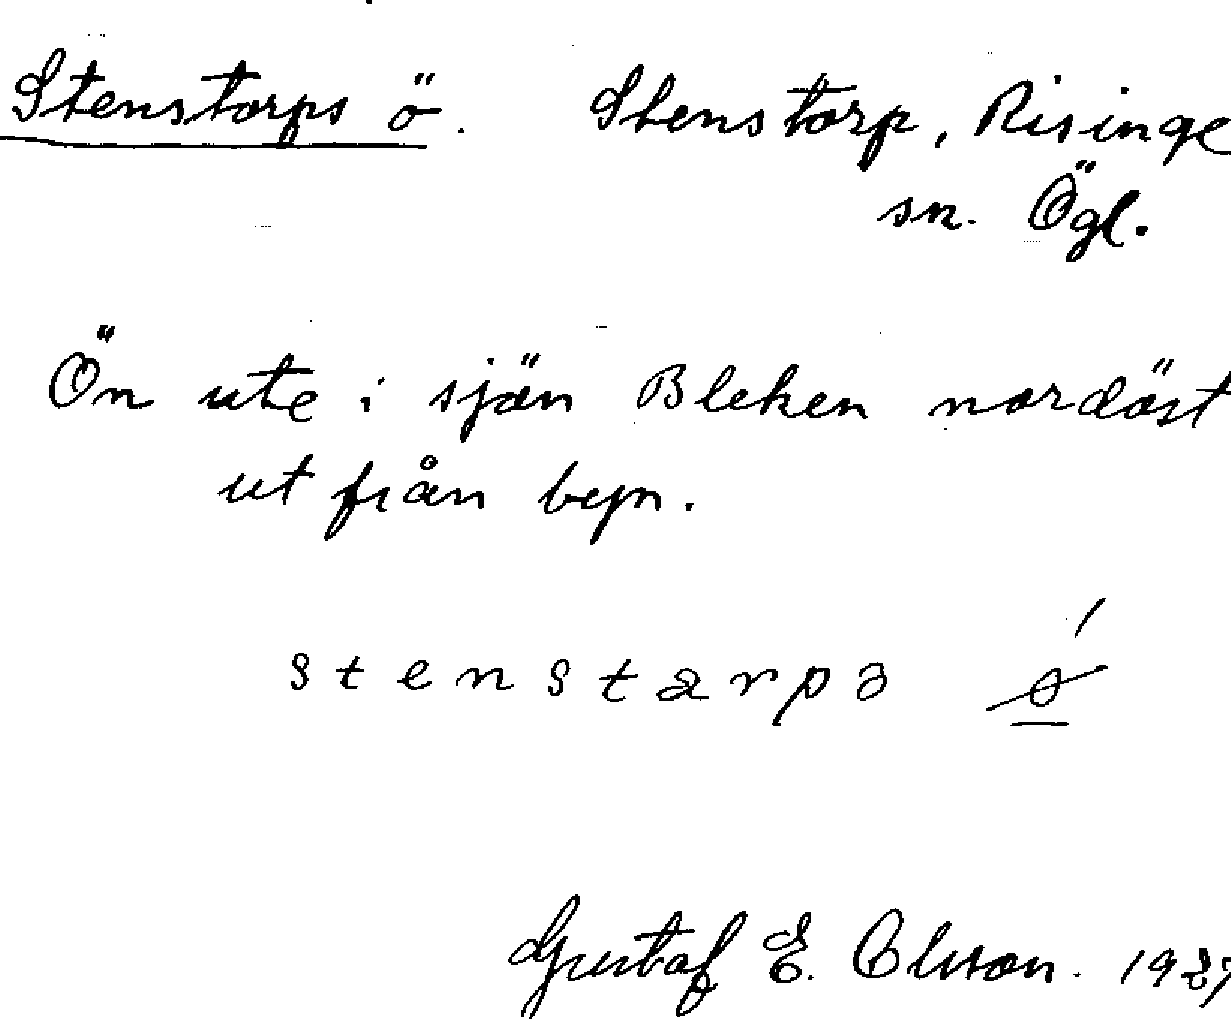 Stenstorps ö. Stenstorp, Risinge
sn. Ögl.
Ön ute i sjön Bleken nordöst
ut från byn.
stenstarpə ǿ
Gustaf E. Olsson. 1927